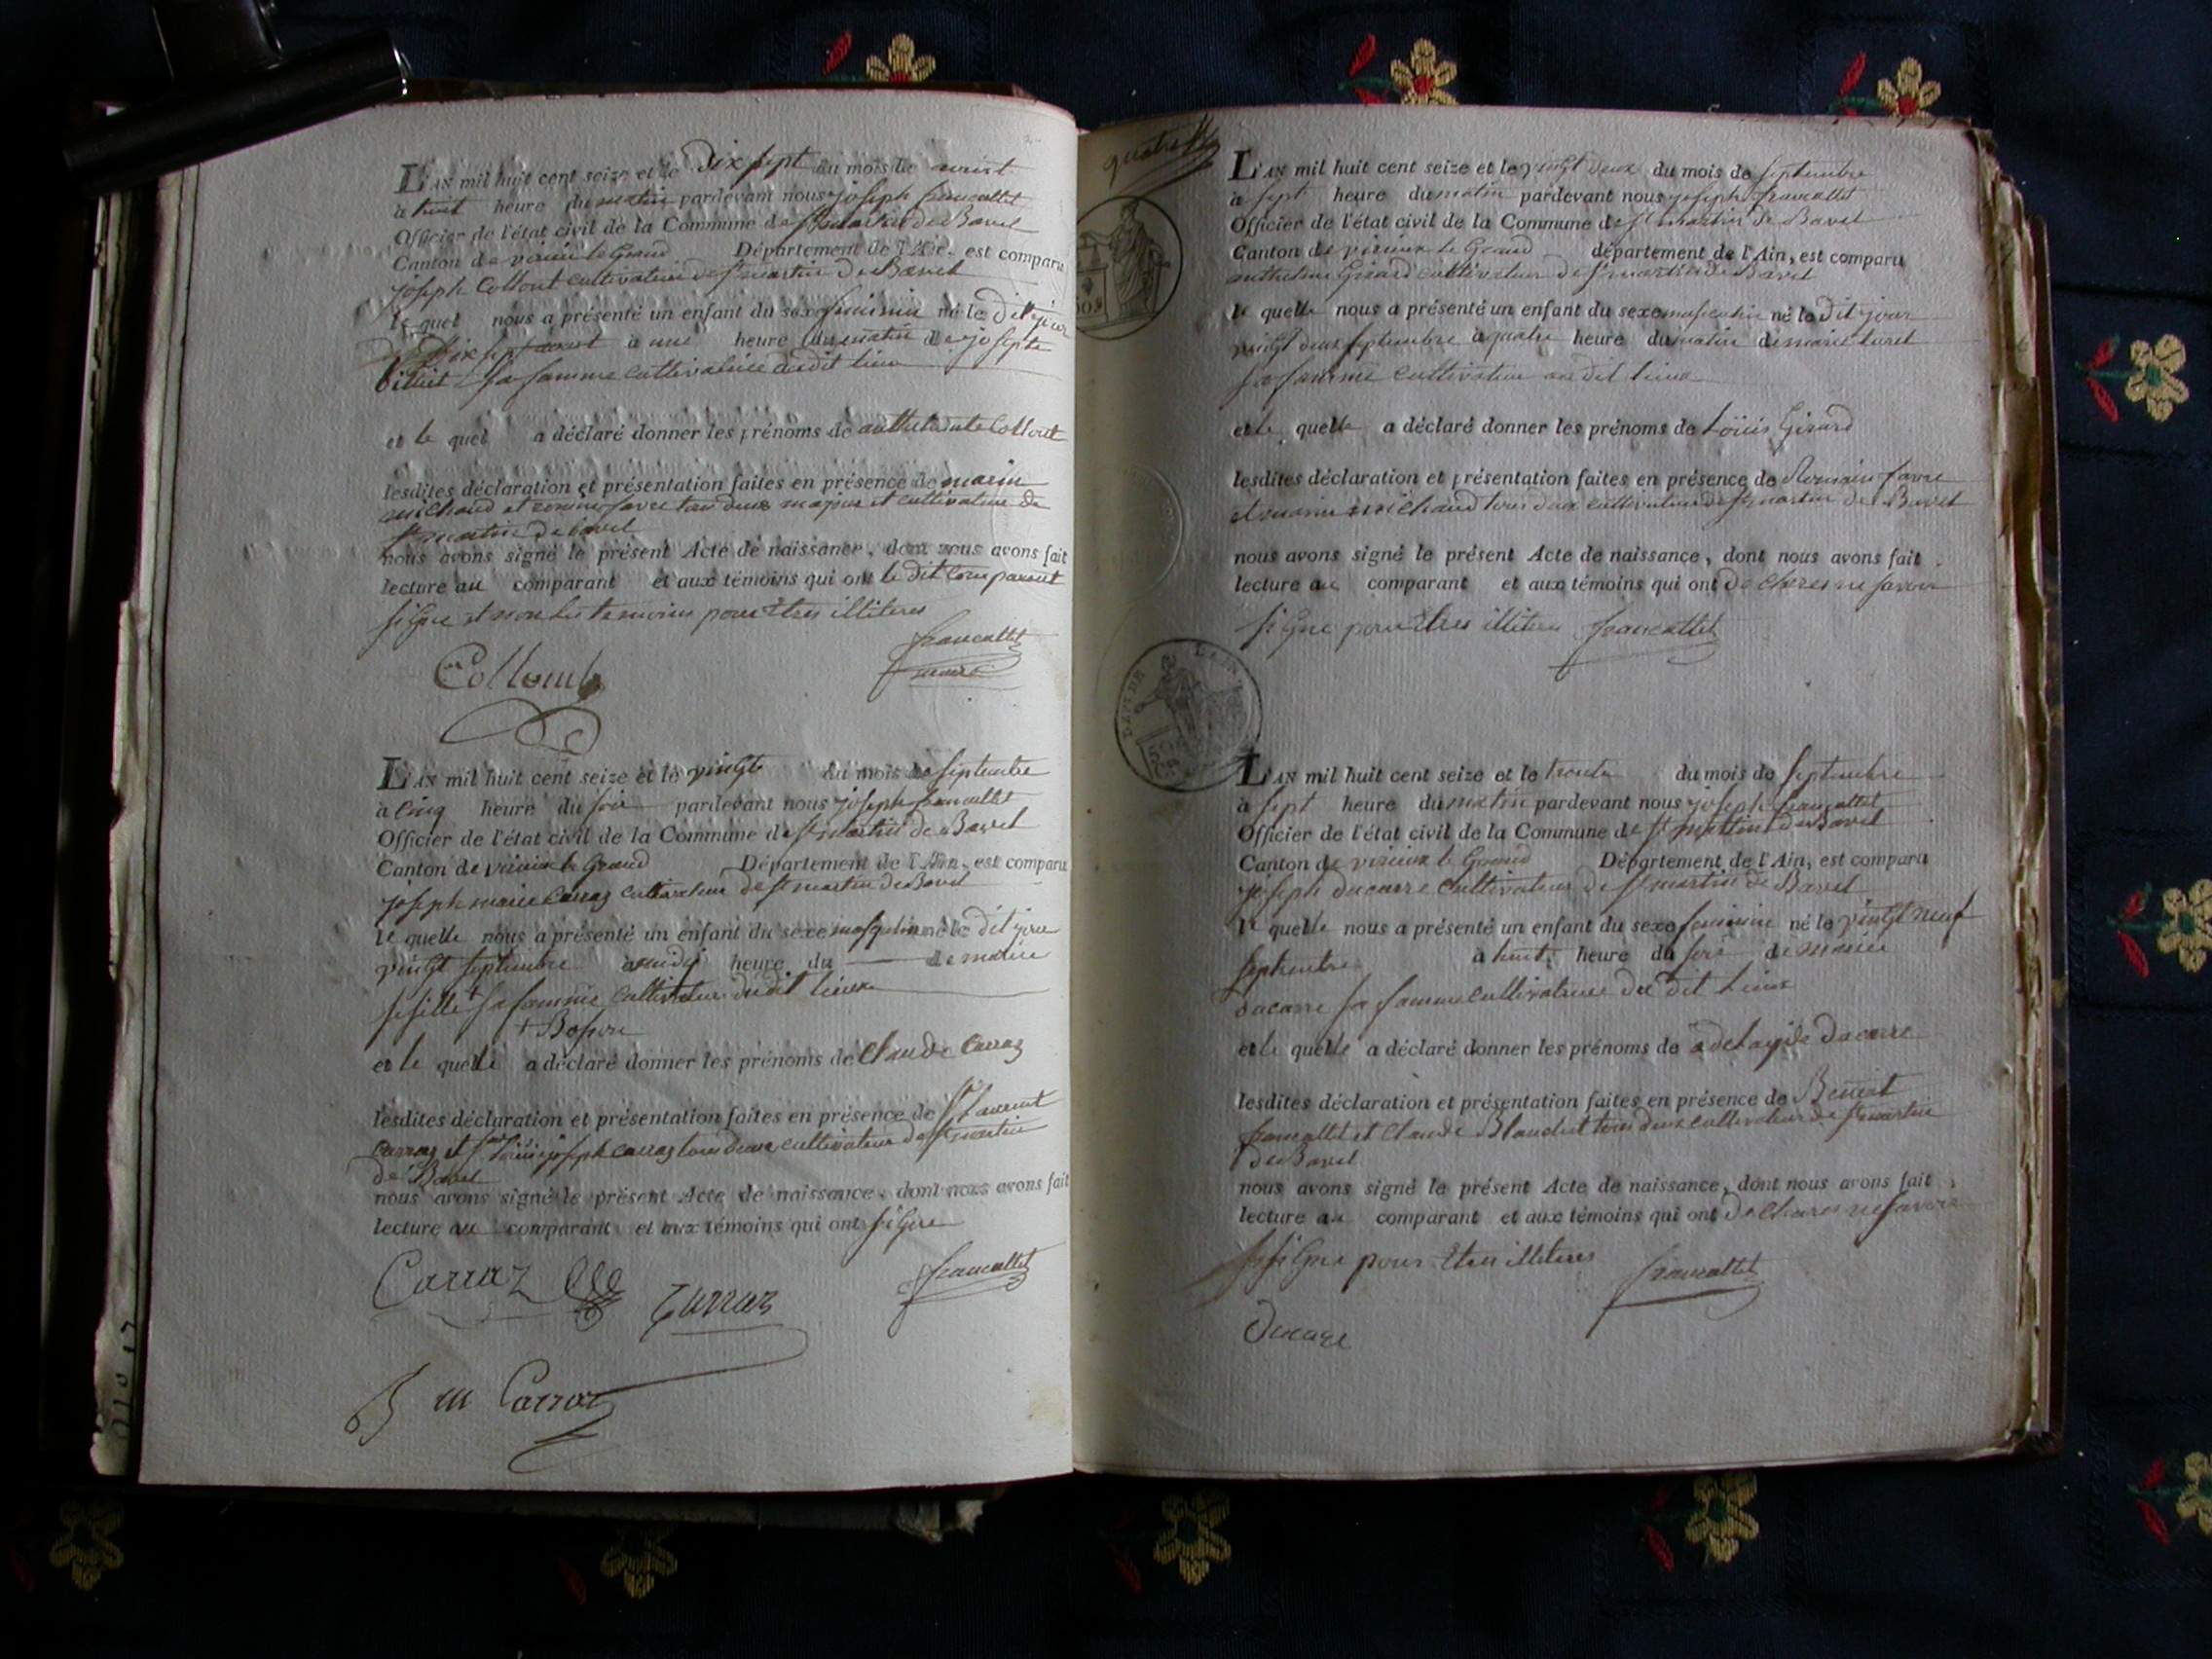 L'AN mil huit cent seize et le Dix sept du mois de aoust
à huit heure du matin pardevant nous joseph francallet
Officier de l'état civil de la Commune de st martin de Bavel
Canton de virieu le Grand Département de l'Ain, est comparu
joseph Collont cultivateur de st martin de Bavel
le quel nous a présenté un enfant du sexe feminin né le Dit jour
Dix sept aoust à une heure du matin de josepte
sa famme cultivatrice dudit lieu
et le quel a déclaré donner les prénoms de Collont
lesdites déclaration et présentation faites en présence de marin
michaud et favre tous deux majeur et cultivateur de
st martin de bavel
nous avons signé le présent Acte de naissance, dont nous avons fait
lecture au comparant et aux témoins qui ont le dit comparant
signe et non les temoins pour êtres illiteres
francallet
maire
Collomb
L'AN mil huit cent seize et le vingt du mois de septembre
à cinq heure du soir pardevant nous joseph francallet
Officier de l'état civil de la Commune de st martin de Bavel
Canton de virieux le Grand Département de l'Ain, est comparu
joseph marie Carraz cultivateur de st martin de Bavel
le quelle nous a présenté un enfant du sexe masqulin né le dit jour
vingt septembre à midy heure du de marie
sesille + sa famme cultivateur dudit lieux
+ Bosson
et le quelle a déclaré donner les prénoms de Claude Carraz
lesdites déclaration et présentation faites en présence de st laurent
Carraz et joseph carraz tous deux cultivateur de st martin
de Bavel
nous avons signé le présent Acte de naissance, dont nous avons fait
lecture au comparant et aux témoins qui ont signe
Carraz
Carraz
francallet
m Carraz
L'AN mil huit cent seize et le vingt deux du mois de septembre
à sept heure du matin pardevant nous joseph francallet
Officier de l'état civil de la Commune de st martin de Bavel
Canton de virieux le Grand département de l'Ain, est comparu
anthelme Girard cultivateur de st martin de Bavel
le quelle nous a présenté un enfant du sexe masculin né le Dit jour
vingt deux septembre à quatre heure du matin de marie
sa famme cultivateur au dit lieux
et le quelle a déclaré donner les prénoms de Loüis Girard
lesdites déclaration et présentation faites en présence de Romain favre
michaud tous deux cultivateur de st martin de Bavel
nous avons signé le présent Acte de naissance, dont nous avons fait
lecture au comparant et aux témoins qui ont declares ne savoir
signe pour êtres illiteres francallet
DEPT DE L'AIN
L'AN mil huit cent seize et le trente du mois de septembre
à sept heure du matin pardevant nous joseph francallet
Officier de l'état civil de la Commune de st martin de Bavel
Canton de virieux le Grand Département de l'Ain, est comparu
joseph ducarre cultivateur de st martin de Bavel
le quelle nous a présenté un enfant du sexe feminine né le vingt neuf
septembre à huit heure du soir de marie
ducarre sa famme cultivateur du dit lieux
et le quelle a déclaré donner les prénoms de adelayde ducarre
lesdites déclaration et présentation faites en présence de Benoit
francallet et Claude Blanchet tous deux cultivateur de st martin
de Bavel
nous avons signé le présent Acte de naissance, dont nous avons fait
lecture au comparant et aux témoins qui ont declares ne savoir
signe pour êtres illiteres francallet